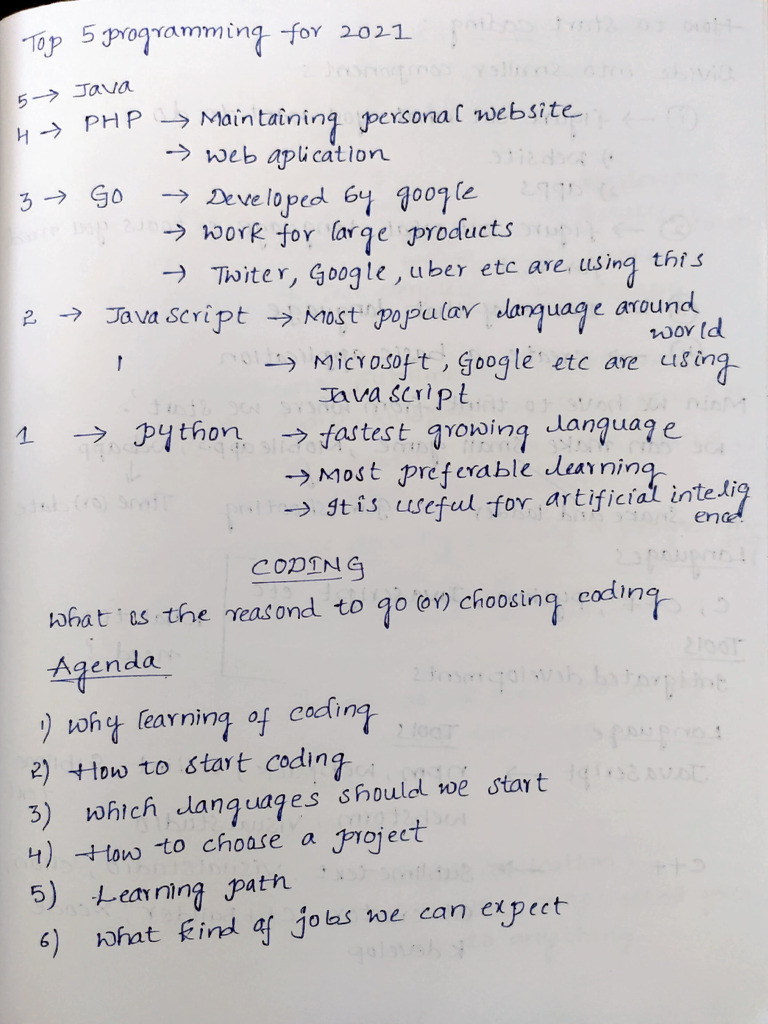 Top 5 programming for 2021
5 → Java
4 → PHP → Maintaining personal website
→ web aplication
3 → GO → Developed by google
→ work for large products
→ Twiter, Google, uber etc are using this
2 → Java script → Most popular language around
world
→ Microsoft, Google etc are using
Java script
1 → python → fastest growing language
→ Most preferable learning
→ It is useful for artificial intelig
ence.
CODING
what is the reasond to go (or) choosing coding
Agenda
1) why learning of coding
2) How to start coding
3) which languages should we start
4) How to choose a project
5) Learning path
6) what kind of jobs we can expect